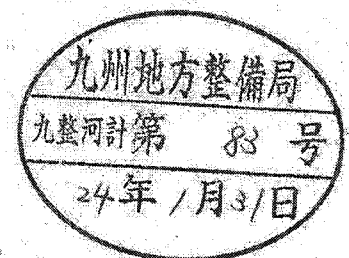 九州地方整備局
九整河計第 83 号
24年1月31日